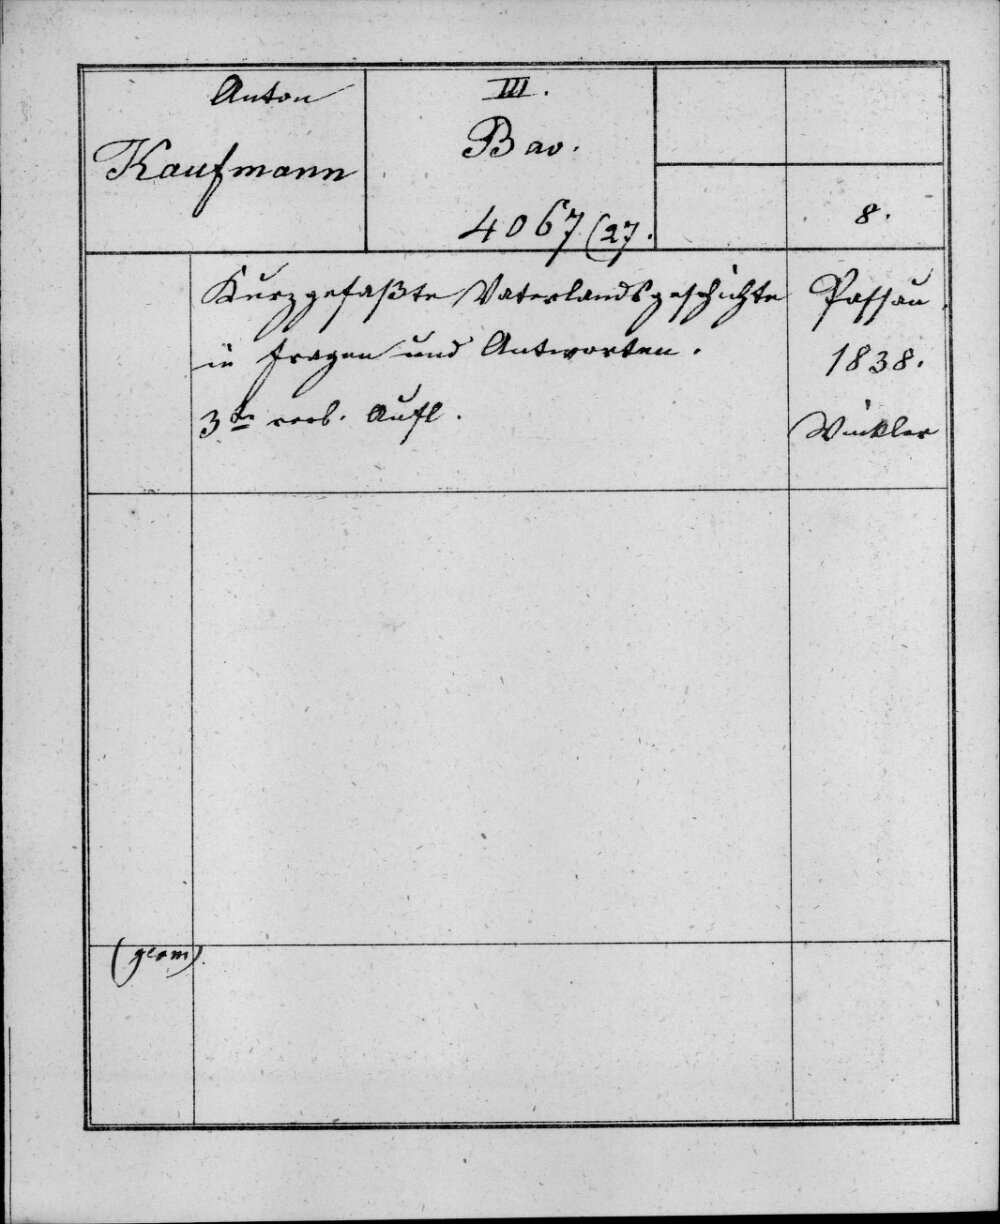 Anton
Kaufmann
III.
Bav.
4067(27.
8.
Kurzgefaßte Vaterlandsgeschichte
in Fragen und Antworten.
3te verb. Aufl.
Passau,
1838.
Winkler
(germ)